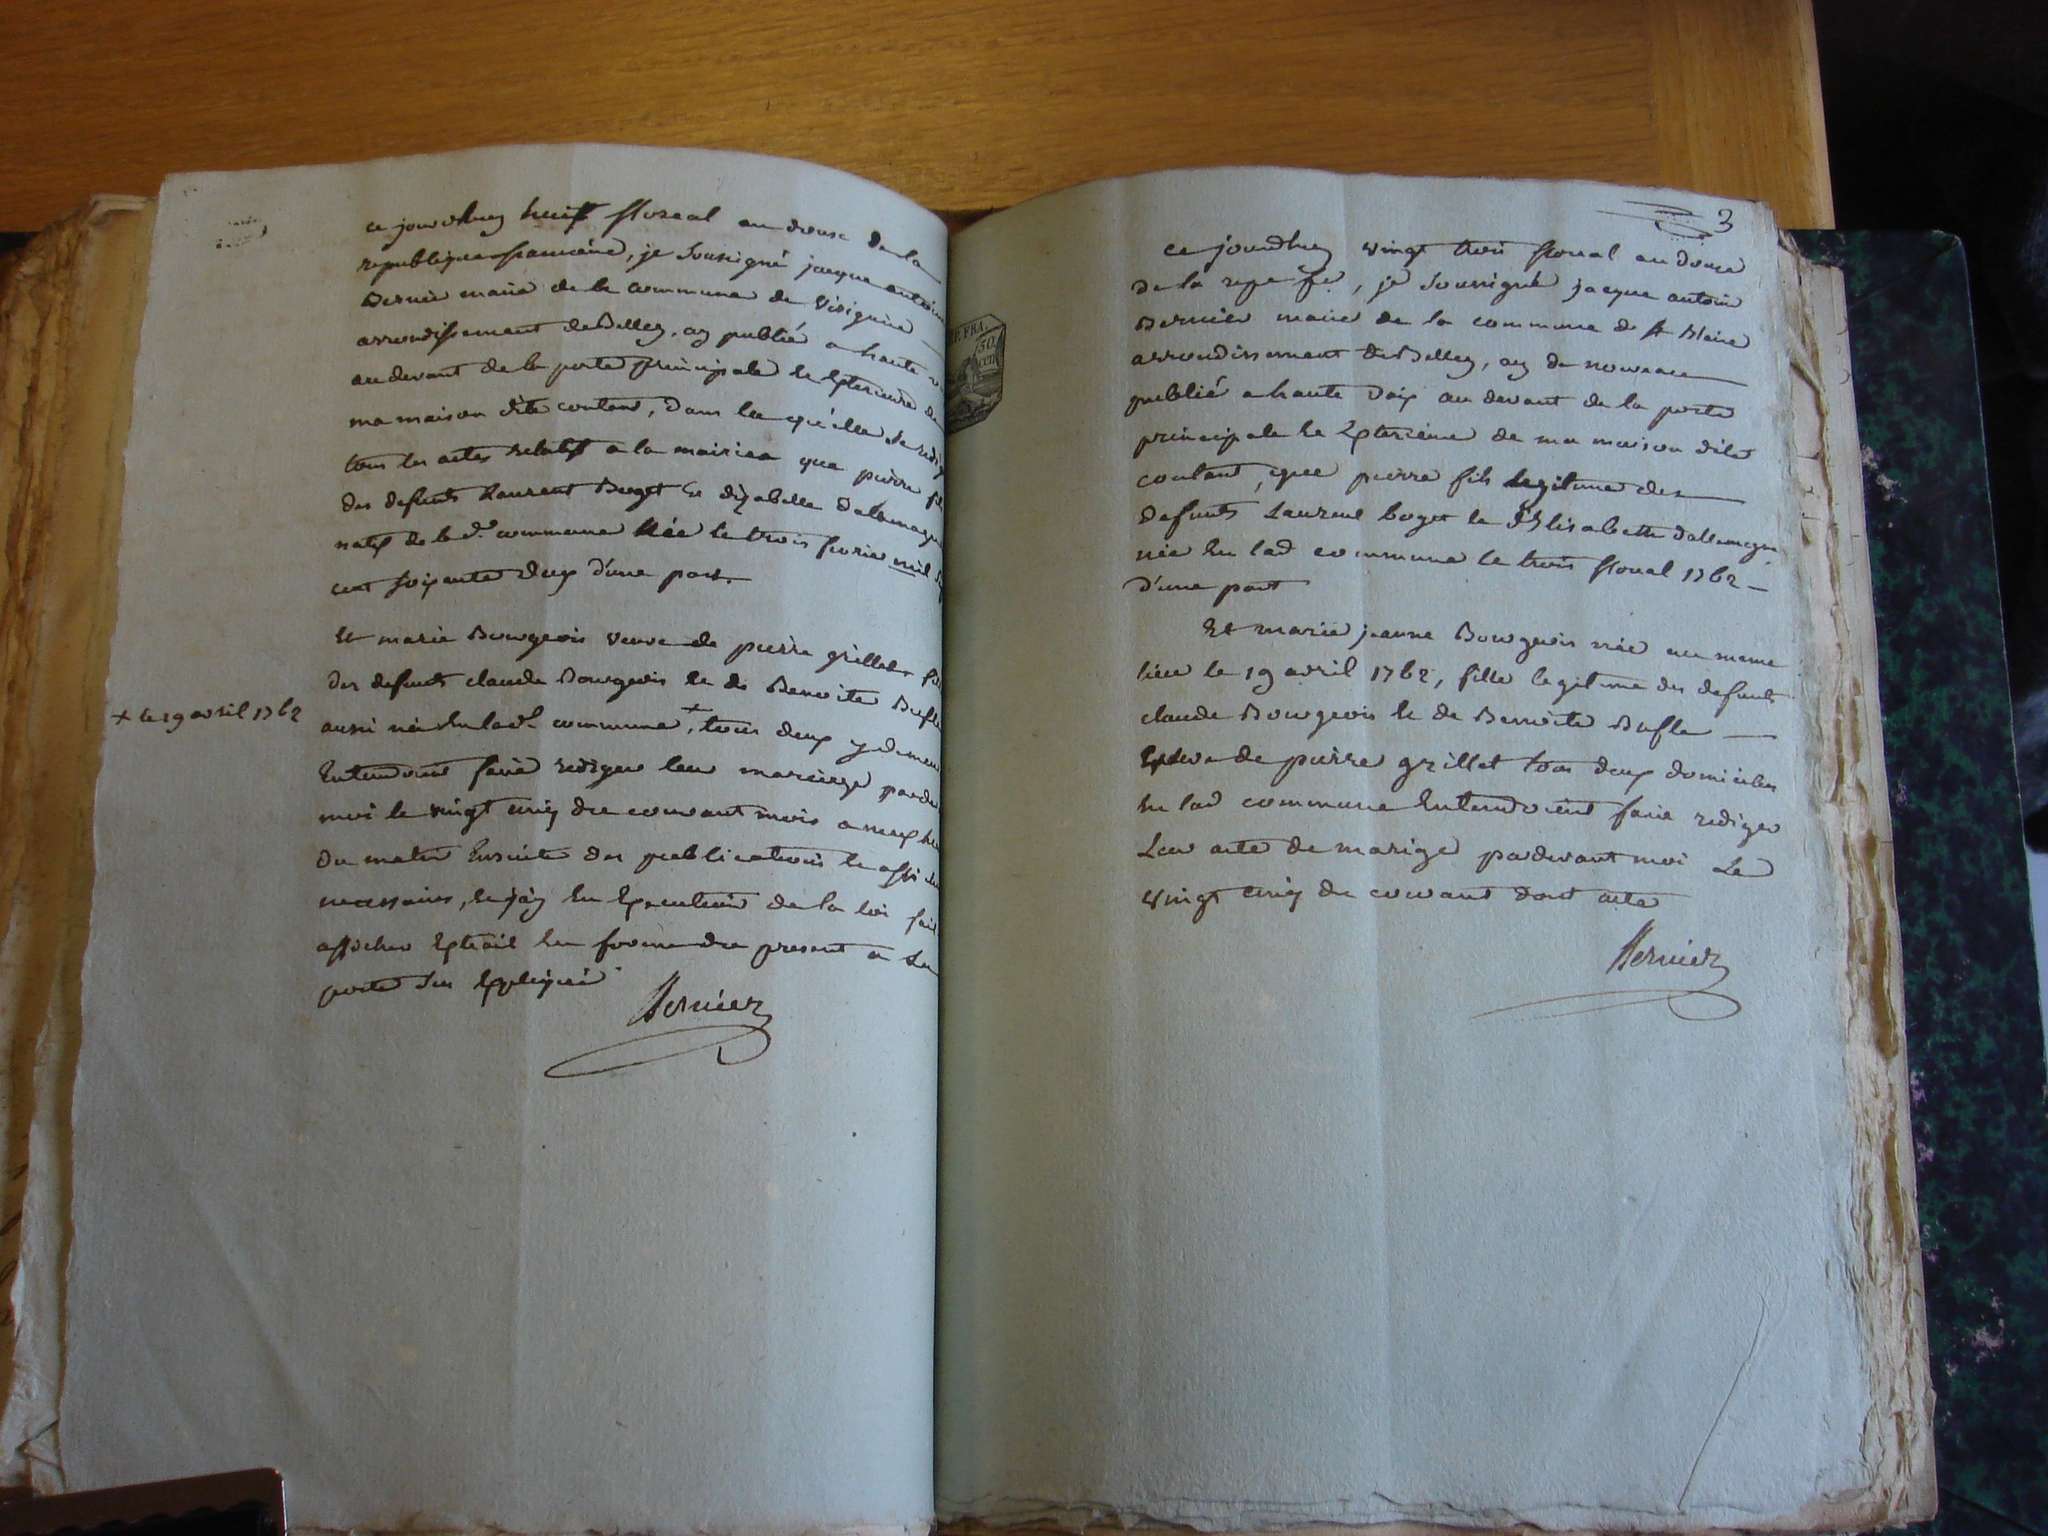 ce jourdhuy huit floreal an douse de la
republique francaine, je Soussigné jacque antoine
Bernier maire de la commune de
arrondissement de Belley, ay publié a haute
au devant de la porte principale et Exterieure de
ma maison dite coutant, dans la quelle se redig
tous les actes relatif a la mairiea que pierre fils
des defunts Laurent Buget et dizabelle dallemagne
natif de lad. commune née le trois fevrie mil sept
cent soixante deux d'une part.
Et marie Bourgeois veuve de pierre grillet, fille
des defunts claude Bourgeois et de Benoite Bufle
aussi née En lad. commune +, tous deux y demeu
+ le 19 avril 1762
Entendoint faire rediger leur mariage pardev
moi le vingt cinq du courant mois a neuf heu
du matin Ensuite des publications et affi
necessaires, et jay En Execution de la loi fait
afficher Extrait En forme du present a la
porte sus Expliquée
Bernier
RÉP. FRA.
50
cen
3
ce jourdhuy vingt trois floreal an douse
de la repe fse, je Soussigné jacque antoine
Bernier maire de la commune de St Blaise
arrondissement de Belley, ay de nouveau
publié a haute voix au devant de la porte
principale et Exterieure de ma maison dite
coutant, que pierre fils legitime des
defunts Laurent boget et d'Elisabette dallemagne
née En lad commune le trois floreal 1762
d'une part
Et marie jeanne Bourgeois née au meme
lieu le 19 avril 1762, fille legitime des defunts
claude Bourgeois et de Benoite Bufle
Exveve de pierre grillet tous deux domicilies
En lad commune Entendoient faire rediger
Leur acte de marige pardevant moi Le
vingt cinq du courant dont acte
Bernier